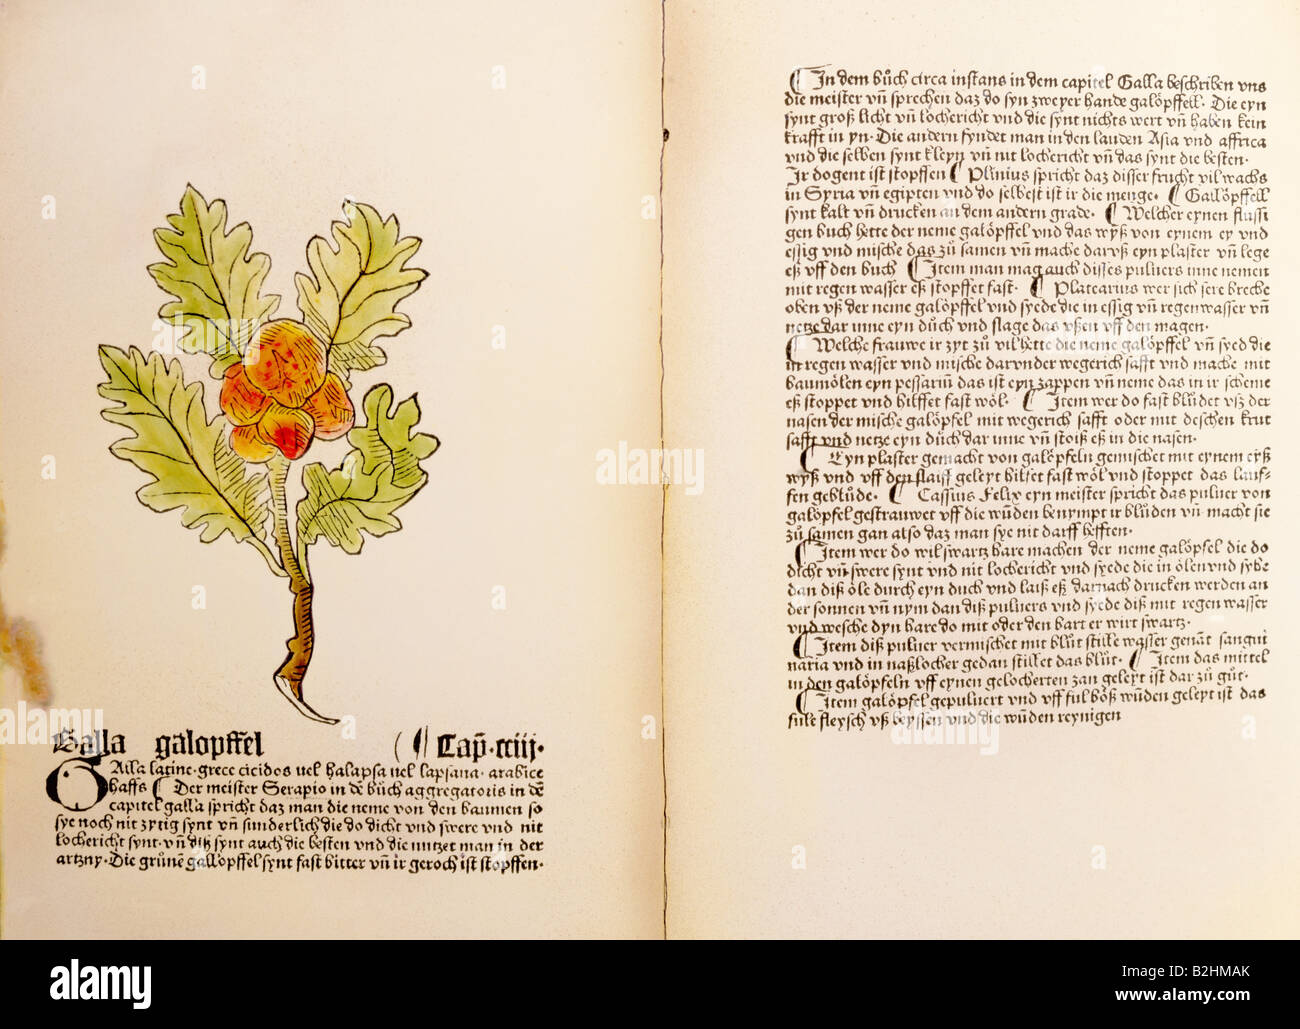 Galla galopffel ( ¶ Cap̄. cciij.
Galla latine. grece cicidos uel halapsa uel lapsana. arabice
haffs ¶ Der meister Serapio in dē bůch aggregatoris in dē
capitel galla spricht daz man die neme von den baumen so
sye noch nit zytig synt vñ sunderlich die do dicht vnd swere vnd nit
lochericht synt. vñ diß synt auch die besten vnd die nutzet man in der
artzny. Die grůnē gallöpffel synt fast bitter vñ ir geroch ist stopffen.
¶ In dem bůch circa instans in dem capitel Galla beschriben vns
die meister vñ sprechen daz do syn zweyer hande galöpffell. Die eyn
synt groß licht vñ lochericht vnd die synt nichts wert vñ haben kein
krafft in yn. Die andern fyndet man in den landen Asia vnd affrica
vnd die selben synt kleyn vñ nit lochericht vñ das synt die besten.
Ir dogent ist stopffen ¶ Plinius spricht daz disser frucht vil wachs
in Syria vñ egipten vnd do selbest ist ir die menge. ¶ Gallöpffell
synt kalt vñ drucken an dem andern grade. ¶ Welcher eynen flussi
gen buch hette der neme galöpffel vnd das wyß von eynem ey vnd
essig vnd mische das zů samen vñ mache daruß eyn plaster vñ lege
eß vff den buch ¶ Item man mag auch disses puluers inne nemen
mit regen wasser eß stopffet fast. ¶ Platearius wer sich sere breche
oben vß der neme galöpffel vnd syede die in essig vñ regen wasser vñ
netze dar inne eyn důch vnd slage das vßen vff den magen.
¶ Welche frauwe ir zyt zů vil hette die neme galöpffel vñ syed die
in regen wasser vnd mische darvnder wegerich safft vnd mache mit
baumölen eyn pessariū das ist eyn zappen vñ neme das in ir scheme
eß stoppet vnd hilffet fast wol. ¶ Item wer do fast blůdet vß der
nasen der mische galöpfel mit wegerich safft oder mit deschen krut
safft vnd netze eyn důch dar inne vñ stoiß eß in die nasen.
¶ Eyn plaster gemacht von galöpfeln gemischet mit eynem eyß
wyß vnd vff den flaiß geleyt hilfet fast wol vnd stoppet das lauf-
fen geblůde. ¶ Cassius Felix eyn meister spricht das puluer von
galöpfel gestrauwet vff die wůden benympt ir blůden vñ macht sie
zů samen gan also daz man sye nit darff hefften.
¶ Item wer do wil swartz hare machen der neme galöpfel die do
dicht vñ swere synt vnd nit lochericht vnd syede die in ölen vnd syhe
dan diß öle durch eyn duch vnd laiß eß darnach drucken werden an
der sonnen vñ nym dan diß puluers vnd syede diß mit regen wasser
vnd wesche dyn hare do mit oder den bart er wirt swartz.
¶ Item diß puluer vermischet mit blůt stille wasser genāt sangui
naria vnd in naßlocher gedan stillet das blůt. ¶ Item das mittel
in den galöpfeln vff eynen gelocherten zan geleyt ist dar zů gůt.
¶ Item galöpfel gepuluert vnd vff ful böß wůden geleyt ist das
fule fleysch vß beyssen vnd die wůden reynigen
alamy
a
alamy
www.alamy.com
Image ID: B2HMAK